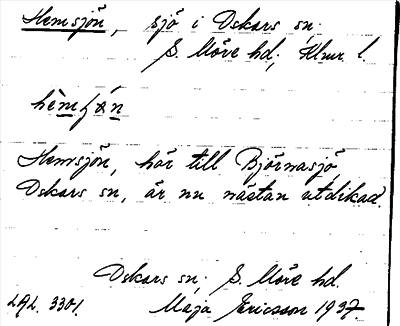 Hemsjön, sjö i Oskars sn.
S. Möre hd; Klmr l.
Hemsjön, hör till Björnasjö,
Oskars sn, är nu nästan utdikad.
Oskars sn; S. Möre hd.
LAL. 3301. Maja Ericsson 1937.